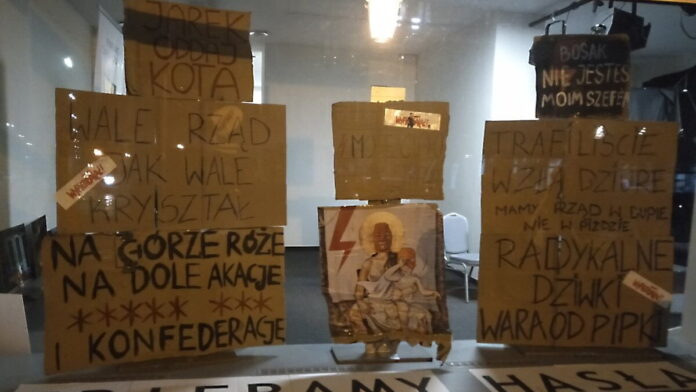 JAREK
ODDAJ
KOTA
WALE RZĄD
JAK WALE
KRYSZTAŁ
NA GÓRZE RÓŻE
NA DOLE AKACJE
***** ***
I KONFEDERACJĘ
BOSAK
NIE JESTEŚ
MOIM SZEFEM
TRAFILIŚCIE
W ZŁĄ DZIURĘ
MAMY RZĄD W DUPIE
NIE W PIŹDZIE
RADYKALNE
DZIWKI
WARA OD PIPKI
HASŁA